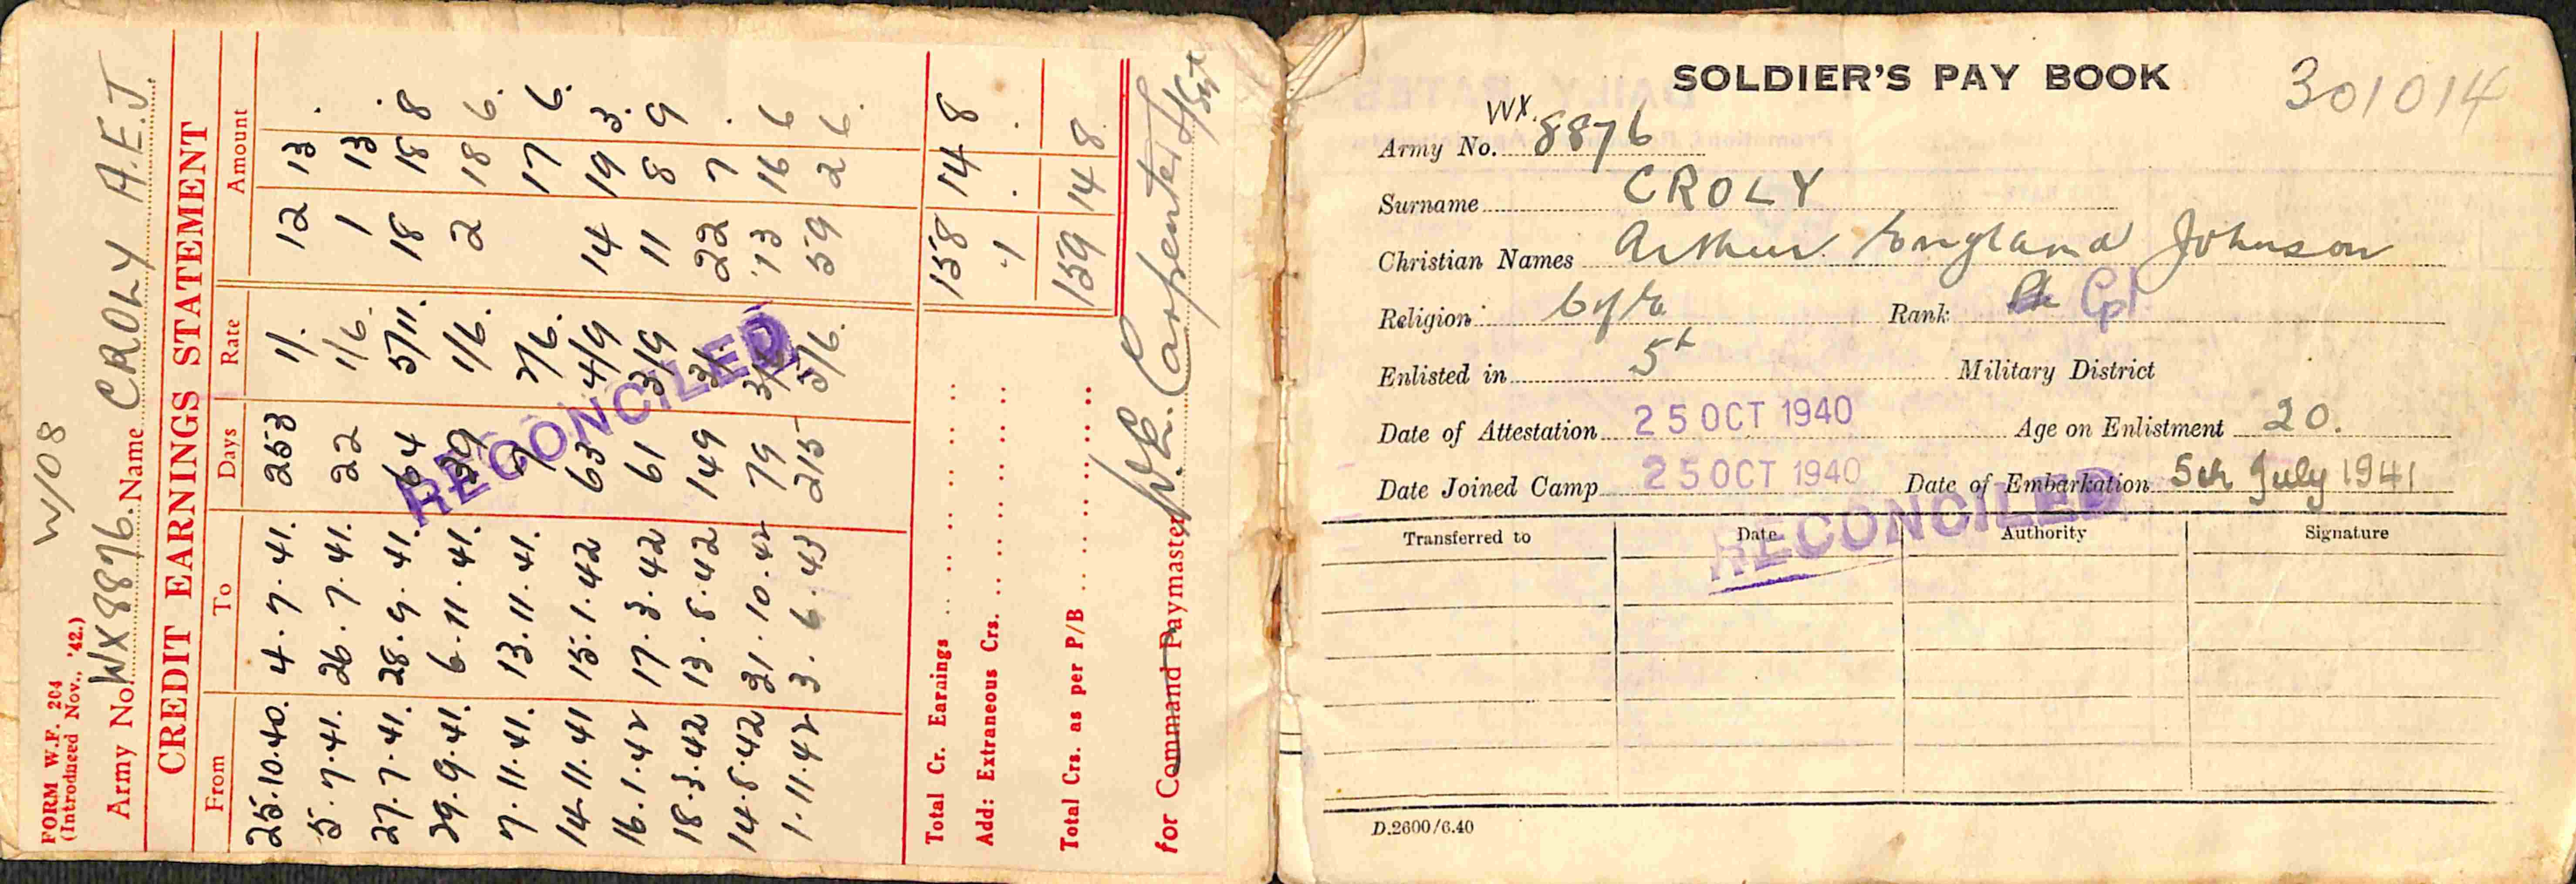 FORM W.F. 204
(Introduced Nov., '42.)
W/08
Army No. WX8876. Name CROLY A.E.J.
CREDIT EARNINGS STATEMENT
From To Days Rate Amount
25.10.40. 4.7.41. 253 1/. 12 13 .
5.7.41. 26.7.41. 22 1/6. 1 13 .
27.7.41. 28.9.41. 64 5/11. 18 18 8
29.9.41. 6.11.41. 39 1/6. 2 18 6.
7.11.41. 13.11.41. 7 2/6. 17 6.
14.11.41 15.1.42 63 4/9 14 19 3.
16.1.42 17.3.42 61 3/9 11 8 9
18.3.42 13.8.42 149 3/. 22 7 .
14.8.42 31.10.42 79 3/6 13 16 6
1.11.42 3.6.43 215 5/6. 59 2 6.
RECONCILED
Total Cr. Earnings 158 14 8
Add: Extraneous Crs. 1 . .
Total Crs. as per P/B 159 14 8
for Command Paymaster W.E. Carpenter
SOLDIER'S PAY BOOK
301014
Army No. WX. 8876
Surname CROLY
Christian Names Arthur England Johnson
Religion C of E Rank Cpl
Enlisted in 5th Military District
Date of Attestation 25 OCT 1940 Age on Enlistment 20.
Date Joined Camp 25 OCT 1940 Date of Embarkation 5th July 1941
RECONCILED
Transferred to Date Authority Signature
D.2600/6.40